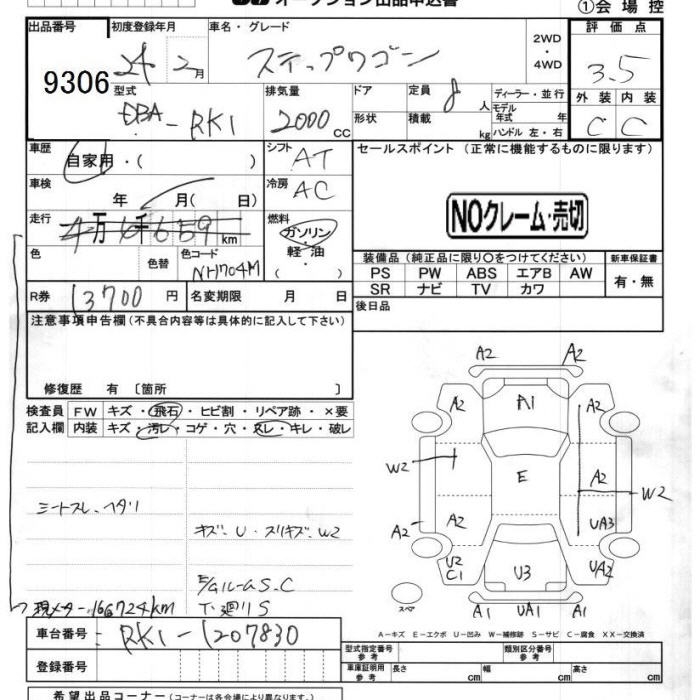 オークション出品申込書
①会場控
出品番号 初度登録年月 車名・グレード 評価点
9306 24 2月 ステップワゴン 2WD・4WD 3.5
型式 排気量 ドア 定員 8人 ディーラー・並行 外装 内装
DBA-RK1 2000cc 形状 積載 kg モデル年式 年 C C
ハンドル 左・右
車歴 自家用・( ) シフト AT セールスポイント (正常に機能するものに限ります)
車検 年 月( 日) 冷房 AC
NOクレーム・売切
走行 4万6千659km 燃料 ガソリン・軽油・( )
色 色替 色コード NH704M
装備品(純正品に限り○をつけてください) 新車保証書
PS PW ABS エアB AW 有・無
SR ナビ TV カワ
R券 13700円 名変期限 月 日 後日品
注意事項申告欄(不具合内容等は具体的に記入して下さい)
修復歴 有〔箇所 〕
検査員記入欄 FW キズ・飛石・ヒビ割・リペア跡・×要
内装 キズ・汚レ・コゲ・穴・スレ・キレ・破レ
A2 A2
A2 A1 A2
W2 E A2 W2
A2 A2 UA3
U2 C1 U3 UA2
スペア A1 UA1 A1
シートスレ、ヘタリ
キズ・U・スリキズ・W2
F/Gルーム S、C
下廻リ S
現メーター166724km
A-キズ E-エクボ U-凹み W-補修跡 S-サビ C-腐食 XX-交換済
車台番号 RK1-1207830
型式指定番号 参考 類別区分番号 参考
登録番号
車庫証明用 参考 長さ cm 幅 cm 高さ cm
希望出品コーナー(コーナーは各会場により異なります)